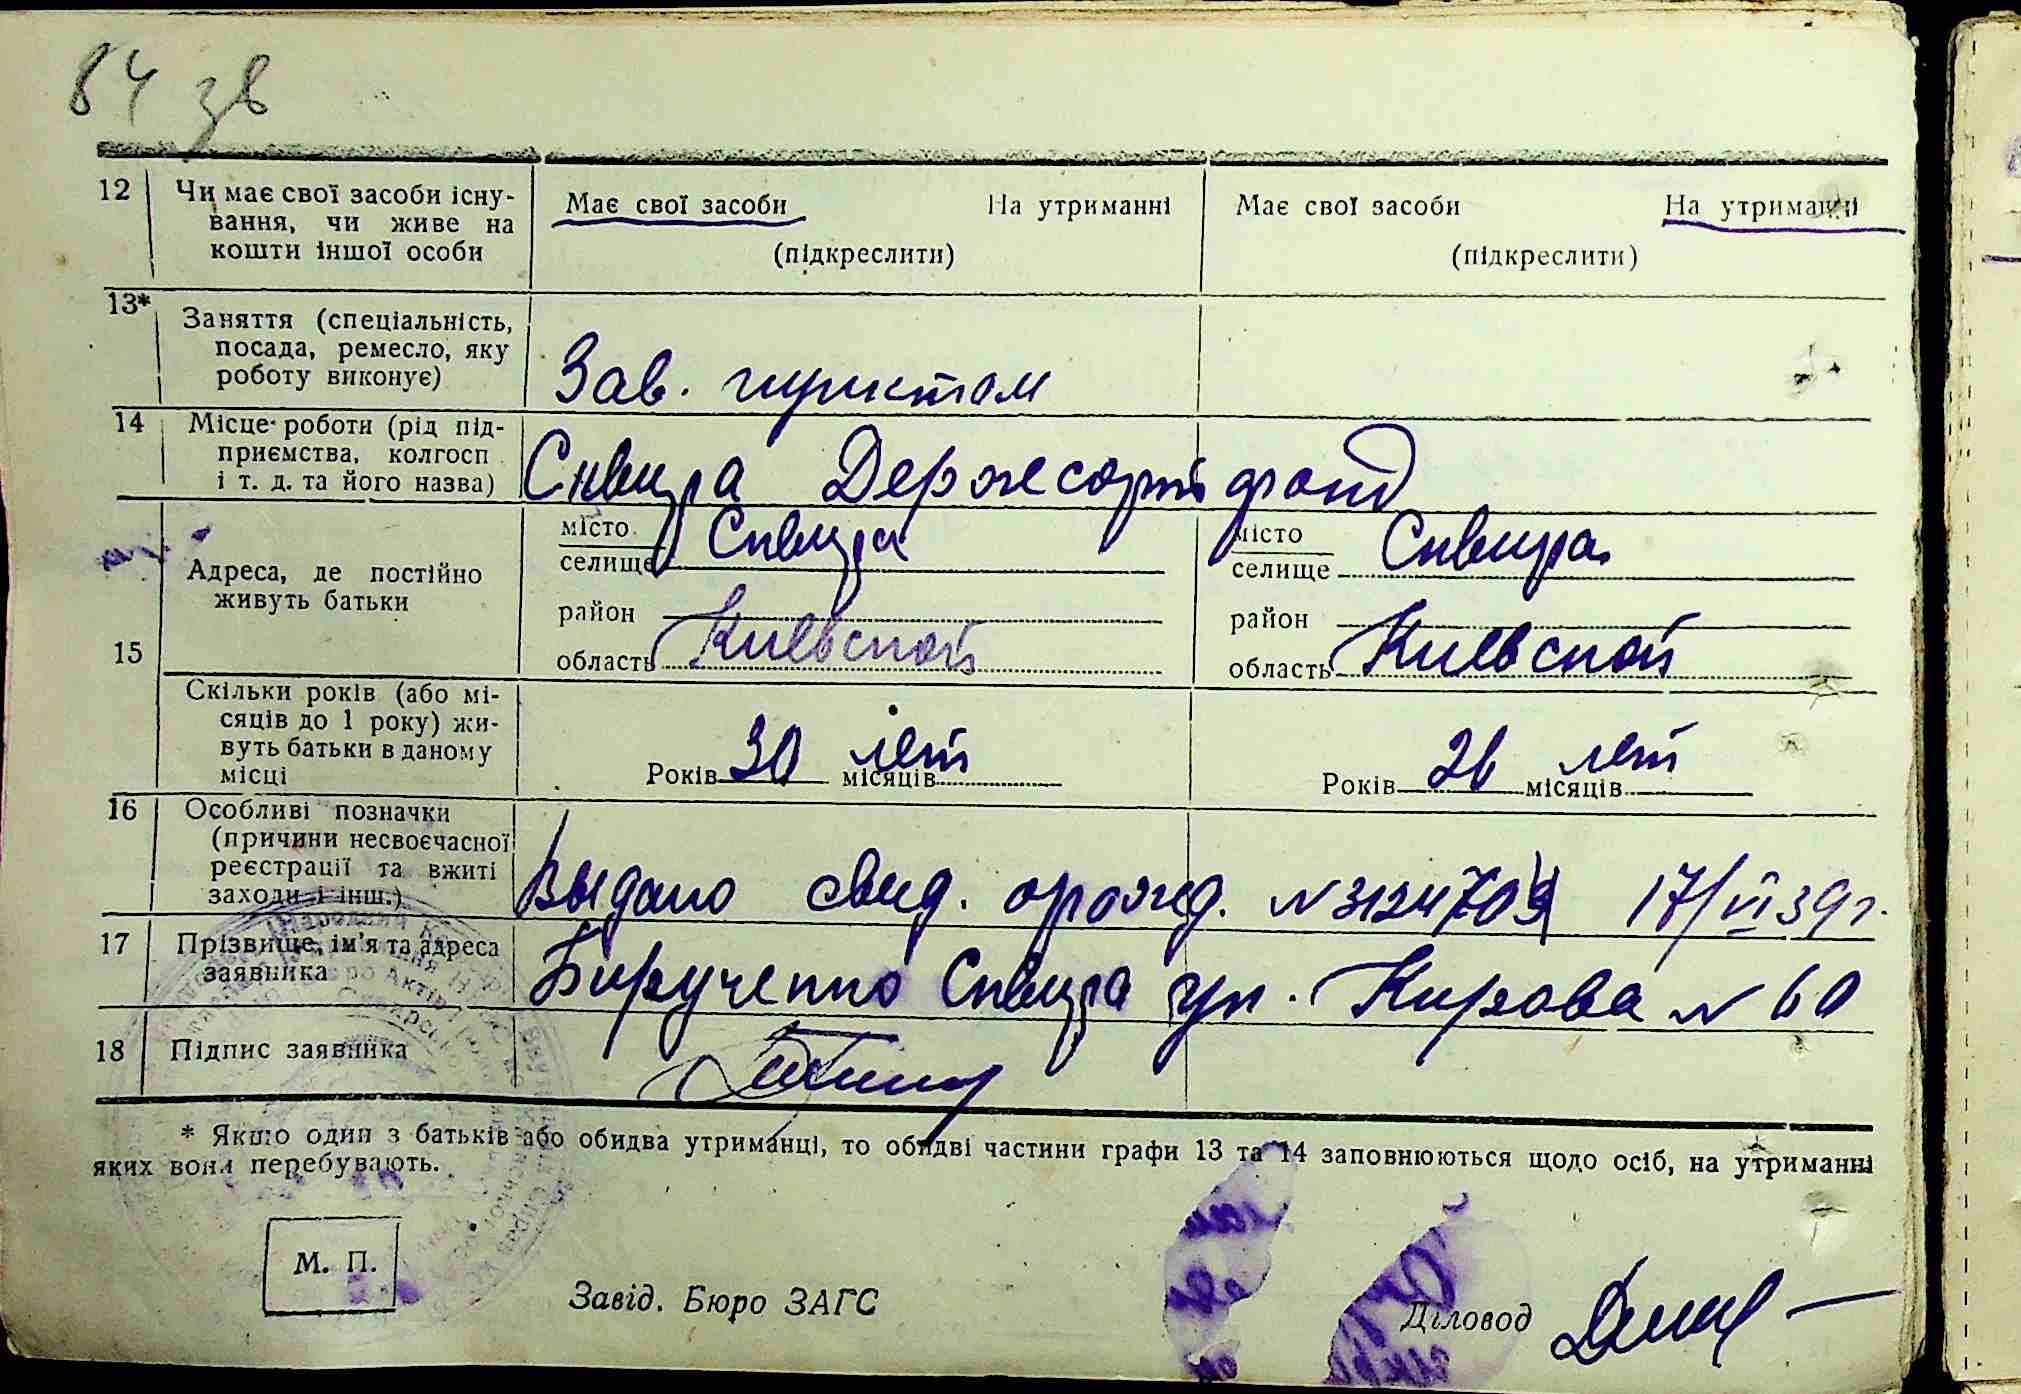 84 зв
12 Чи має свої засоби існу-
вання, чи живе на
кошти іншої особи
Має свої засоби На утриманні
(підкреслити)
Має свої засоби На утриманні
(підкреслити)
13* Заняття (спеціальність,
посада, ремесло, яку
роботу виконує)
Зав. пунктом
14 Місце роботи (рід під-
приємства, колгосп
і т. д. та його назва)
Сквира Держсорт фонд
15 Адреса, де постійно
живуть батьки
місто Сквира
селище
район
область Киевской
місто Сквира
селище
район
область Киевской
Скільки років (або мі-
сяців до 1 року) жи-
вуть батьки в даному
місці
Років 30 лет місяців
Років 26 лет місяців
16 Особливі позначки
(причини несвоєчасної
реєстрації та вжиті
заходи і інш.)
Выдано свид. о рожд. № 17/VI 39 г.
17 Прізвище, ім'я та адреса
заявника
Бирученко Сквира ул. Кирова № 60
18 Підпис заявника
* Якщо один з батьків або обидва утриманці, то обидві частини графи 13 та 14 заповнюються щодо осіб, на утриманні
яких вони перебувають.
М. П.
Завід. Бюро ЗАГС
Діловод